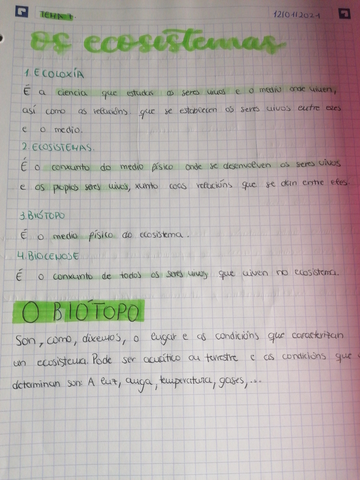 TEMA 1
12/01/2021
os ecosistemas
1. ECOLOXÍA
É a ciencia que estuda os seres vivos e o medio onde viven,
así como as relacións que se establecen os seres vivos entre eles
e o medio.
2. ECOSISTEMAS.
É o conxunto do medio físico onde se desenvolven os seres vivos,
e os propios seres vivos, xunto coas relacións que se dan entre eles.
3. BIÓTOPO
É o medio físico do ecosistema.
4. BIOCENOSE
É o conxunto de todos os seres vivos que viven no ecosistema.
O BIÓTOPO
Son, como, dixemos, o lugar e as condicións que caracterizan
un ecosistema. Pode ser acuático ou terrestre e as condicións que
determinan son: A luz, auga, temperatura, gases,...